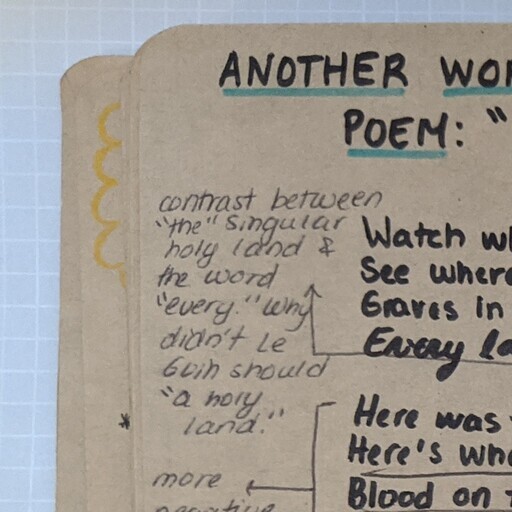 ANOTHER WOR
POEM: "
contrast between
"the" singular
holy land &
the word
"every." Why
didn't Le
Guin should
"a holy
land."
more
negative
Watch wh
See where
Graves in
Every la
Here was
Here's whe
Blood on